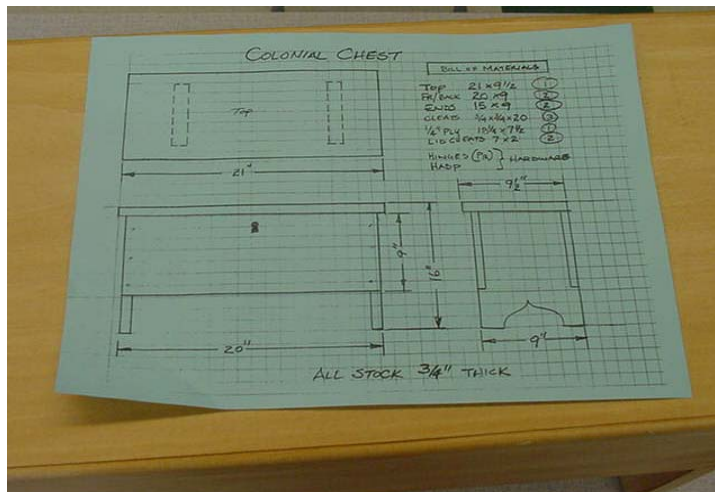 COLONIAL CHEST
BILL OF MATERIALS
TOP 21 x 9 1/2 1
FR/BACK 20 x 9 2
ENDS 15 x 9 2
CLEATS 3/4 x 3/4 x 20
1/4" PLY 7 1/2 1
LID CLEATS 7 x 2 2
HINGES (PIN) } HARDWARE
HASP
Top
21"
9 1/2"
9"
16"
20"
9"
ALL STOCK 3/4" THICK